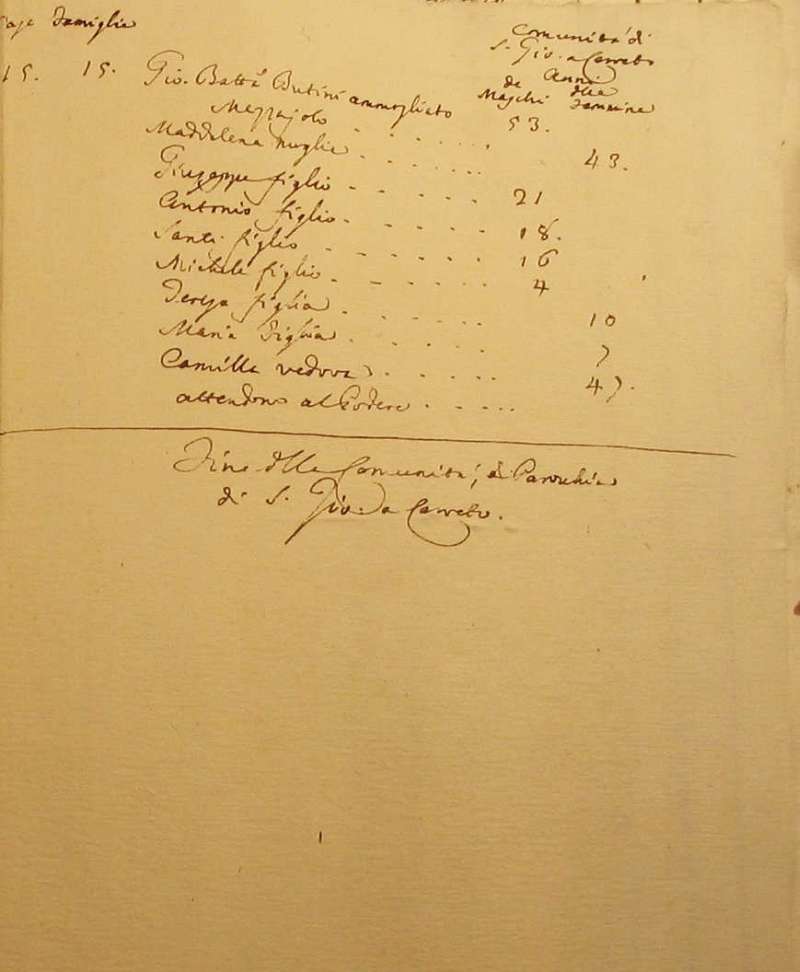 Case Famiglie
Comunità di
S. Gio. a Cerreto
Anni
de Maschi
delle Femine
15. 15. Gio. Batta Butini ammogliato
Mezzajolo 53.
Maddalena moglie 43.
Giuseppe figlio 21
Antonio figlio 18.
Santi figlio 16
Michele figlio 4
Teresa figlia 10
Maria figlia 7
Camilla vedova 47.
attendono al Podere
Fine della Comunità, di Parochia
di S. Gio. da Cerreto.